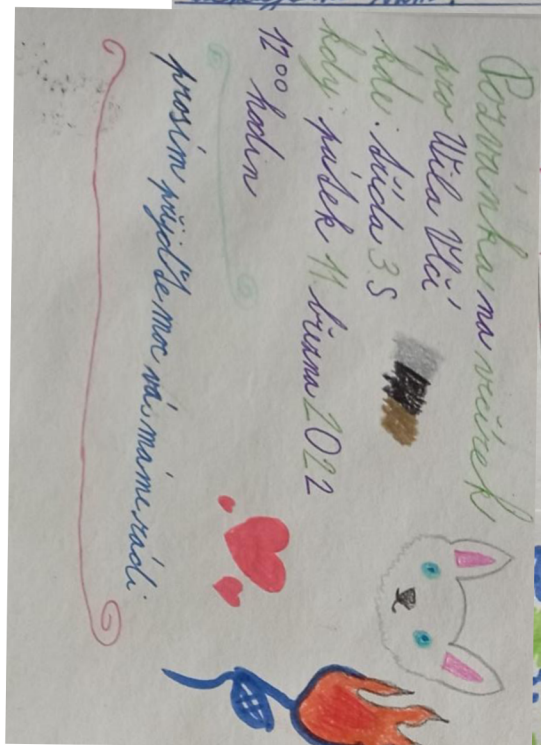 Pozvánka na večírek
pro Vílu Vlčí
kde: třída 3.S
kdy: pátek 11 března 2022
12⁰⁰ hodin
prosím přijďte moc vás máme rádi